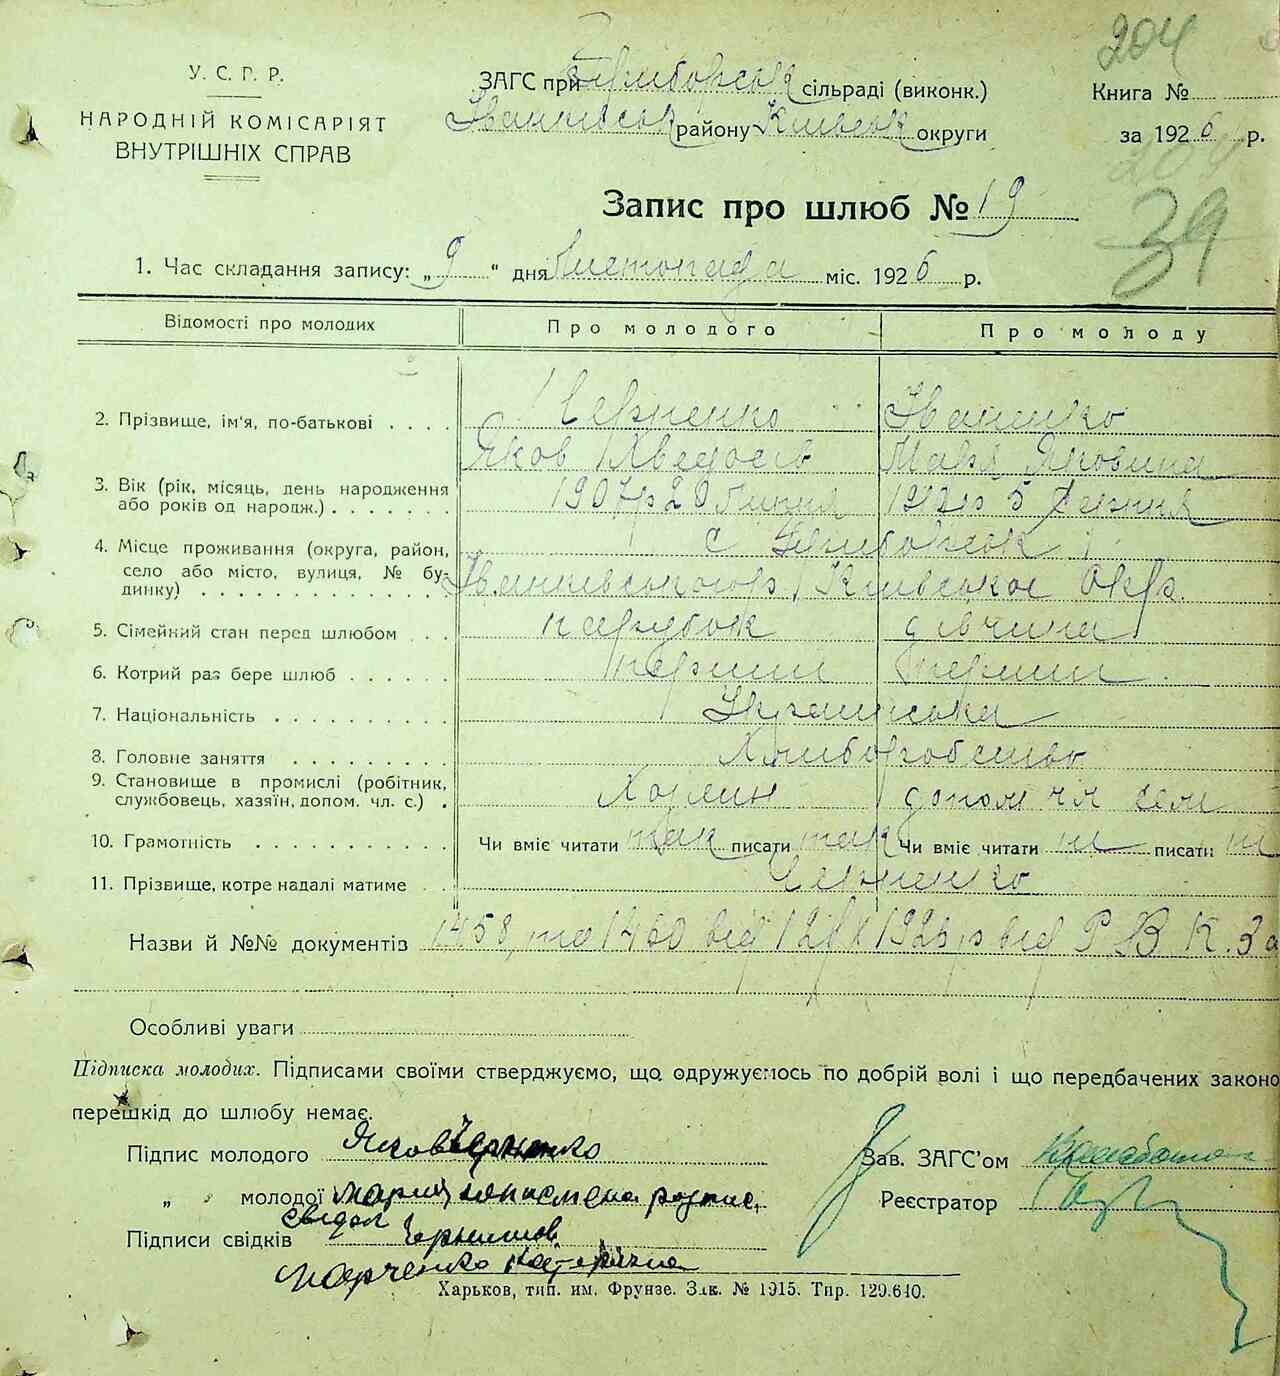 204
У. С. Г. Р.
НАРОДНІЙ КОМІСАРІЯТ
ВНУТРІШНІХ СПРАВ
ЗАГС при сільраді (виконк.)
Іванківськ району Київськ округи
Книга №
за 1926 р.
204
39
Запис про шлюб № 19
1. Час складання запису: „ 9 “ дня Листопада міс. 1926 р.
Відомості про молодих Про молодого Про молоду
2. Прізвище, ім'я, по-батькові . . . . Черненко Іваненко
Яков Марія Яковина
3. Вік (рік, місяць, день народження 1907 р 20 Липня 5 Серпня
або років од народж.) . . . . . . .
4. Місце проживання (округа, район, с
село або місто, вулиця, № бу- Іванківського р Київської Окр.
динку) . . . . . . . . . . . . .
5. Сімейний стан перед шлюбом . . . парубок дівчина
6. Котрий раз бере шлюб . . . . . . перший перший
7. Національність . . . . . . . . . Українська
8. Головне заняття . . . . . . . . . Хлиборобство
9. Становище в промислі (робітник, Хазяин допом чл сем
службовець, хазяїн, допом. чл. с.) .
10. Грамотність . . . . . . . . . . . Чи вміє читати так писати так Чи вміє читати ні писати ні
11. Прізвище, котре надалі матиме . . Черненко
Назви й №№ документів 1458, та 1460 від 1926 р від Р. В. К. За
Особливі уваги
Підписка молодих. Підписами своїми стверджуємо, що одружуємось по добрій волі і що передбачених законо
перешкід до шлюбу немає.
Підпис молодого Яков Черненко
Зав. ЗАГС'ом
„ „ молодої Мария неписмена роспис.
Реєстратор
свідол
Підписи свідків
Марченко
Харьков, тип. им. Фрунзе. Зак. № 1915. Тир. 129.640.